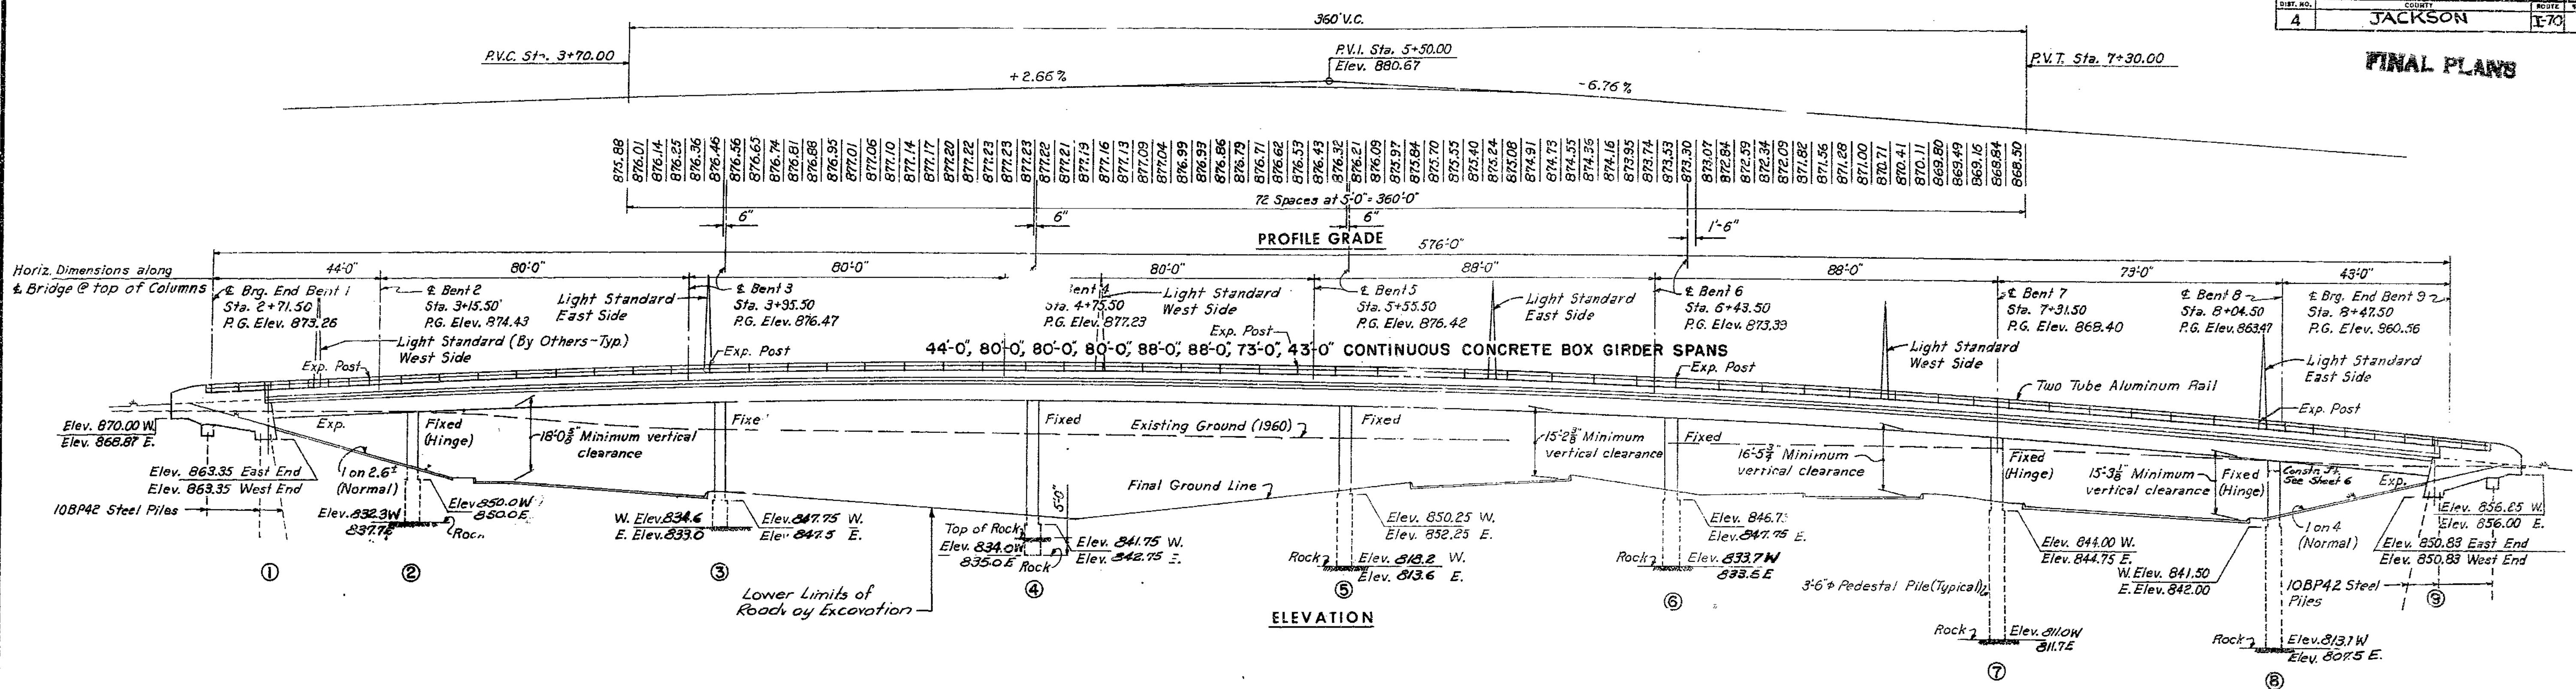 DIST. NO.
COUNTY
ROUTE
4
JACKSON
I-70
FINAL PLANS
360' V.C.
P.V.C. Sta. 3+70.00
P.V.I. Sta. 5+50.00
Elev. 880.67
P.V.T. Sta. 7+30.00
+2.66%
-6.76%
875.88
876.01
876.14
876.25
876.36
876.46
876.56
876.65
876.74
876.81
876.88
876.95
877.01
877.06
877.10
877.14
877.17
877.20
877.22
877.23
877.23
877.23
877.22
877.21
877.19
877.16
877.13
877.09
877.04
876.99
876.93
876.86
876.79
876.71
876.62
876.53
876.43
876.32
876.21
876.09
875.97
875.84
875.70
875.55
875.40
875.24
875.08
874.91
874.73
874.55
874.36
874.16
873.95
873.74
873.53
873.30
873.07
872.84
872.59
872.34
872.09
871.82
871.56
871.28
871.00
870.71
870.41
870.11
869.80
869.49
869.16
868.84
868.50
72 Spaces at 5'-0" = 360'-0"
6"
6"
6"
1'-6"
PROFILE GRADE
576'-0"
Horiz. Dimensions along
℄ Bridge @ top of Columns
44'-0"
80'-0"
80'-0"
80'-0"
88'-0"
88'-0"
73'-0"
43'-0"
℄ Brg. End Bent 1
Sta. 2+71.50
P.G. Elev. 873.26
℄ Bent 2
Sta. 3+15.50
P.G. Elev. 874.43
Light Standard
East Side
℄ Bent 3
Sta. 3+95.50
P.G. Elev. 876.47
Sta. 4+75.50
P.G. Elev. 877.23
Light Standard
West Side
℄ Bent 5
Sta. 5+55.50
P.G. Elev. 876.42
Light Standard
East Side
℄ Bent 6
Sta. 6+43.50
P.G. Elev. 873.39
℄ Bent 7
Sta. 7+31.50
P.G. Elev. 868.40
℄ Bent 8
Sta. 8+04.50
P.G. Elev. 863.47
℄ Brg. End Bent 9
Sta. 8+47.50
P.G. Elev. 860.56
Light Standard (By Others-Typ.)
West Side
Exp. Post
Exp. Post
Exp. Post
44'-0", 80'-0", 80'-0", 80'-0", 88'-0", 88'-0", 73'-0", 43'-0" CONTINUOUS CONCRETE BOX GIRDER SPANS
Exp. Post
Light Standard
West Side
Light Standard
East Side
Two Tube Aluminum Rail
Exp. Post
Elev. 870.00 W.
Elev. 868.87 E.
Exp.
Fixed
(Hinge)
18'-0⅝" Minimum vertical
clearance
Fixed
Existing Ground (1960)
Fixed
15'-2⅜" Minimum
vertical clearance
Fixed
16'-5¾" Minimum
vertical clearance
Fixed
(Hinge)
15'-3⅛" Minimum
vertical clearance
Fixed
(Hinge)
Constn. Jt.
See Sheet 6
Exp.
Elev. 863.35 East End
Elev. 863.35 West End
1 on 2.6±
(Normal)
10BP42 Steel Piles
Elev. 832.3W
837.7E
Elev 850.0W
850.0E
Rock
W. Elev. 834.6
E. Elev. 833.0
Elev. 847.75 W.
Elev. 847.5 E.
Final Ground Line
5'-0"
Top of Rock
Elev. 834.0W
835.0E
Rock
Elev. 841.75 W.
Elev. 842.75 E.
Elev. 850.25 W.
852.25 E.
Rock
Elev. 818.2 W.
Elev. 813.6 E.
Elev. 846.7
Elev. 847.75 E.
Rock
Elev. 833.7W
833.6E
Elev. 844.00 W.
Elev. 844.75 E.
W. Elev. 841.50
E. Elev. 842.00
1 on 4
(Normal)
Elev. 856.25 W.
Elev. 856.00 E.
Elev. 850.83 East End
Elev. 850.83 West End
10BP42 Steel
Piles
3'-6"⌀ Pedestal Pile (Typical)
Lower Limits of
Roadway Excavation
Rock
Elev. 811.0W
811.7E
Rock
Elev. 813.1W
Elev. 807.5 E.
1
2
3
4
5
6
7
8
9
ELEVATION